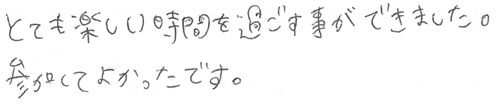 とても楽しい時間を過ごす事ができました。
参加してよかったです。